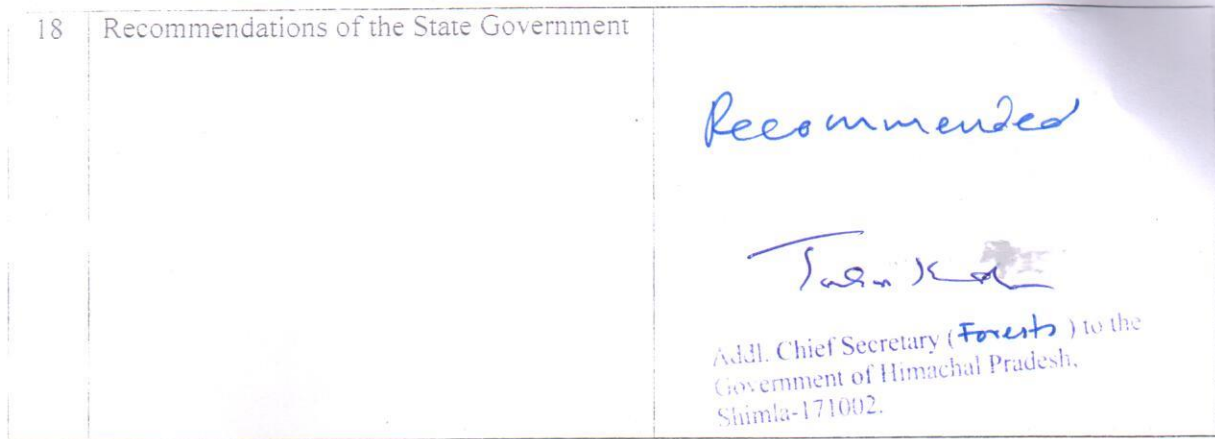 18 Recommendations of the State Government
Recommended
Addl. Chief Secretary (Forests) to the
Government of Himachal Pradesh,
Shimla-171002.